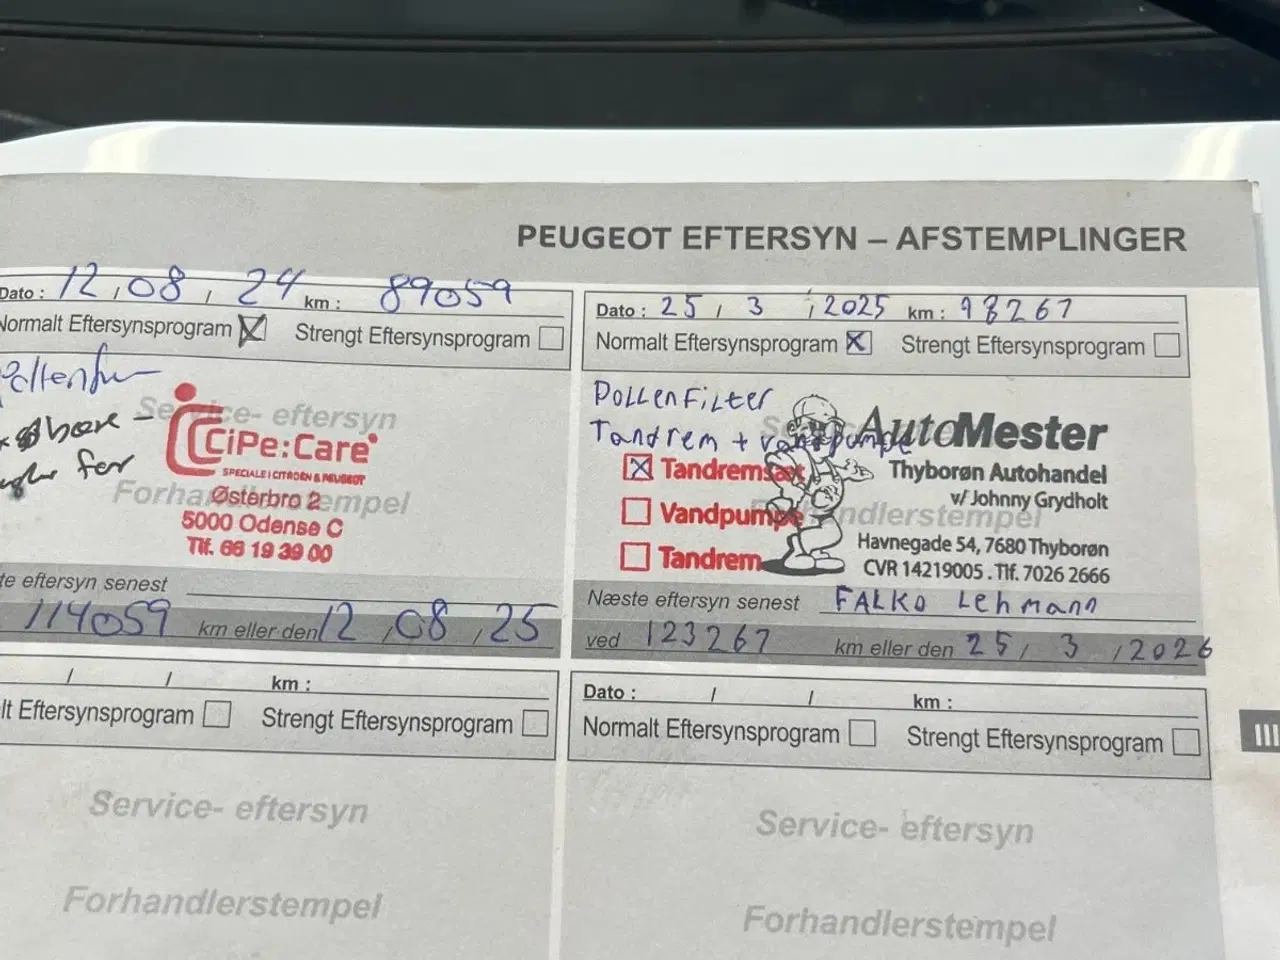 PEUGEOT EFTERSYN – AFSTEMPLINGER
Dato : 12,08,24 km : 89059
Normalt Eftersynsprogram Strengt Eftersynsprogram
Service- eftersyn
CiPe:Care
SPECIALE I CITROËN & PEUGEOT
Forhandlerstempel
Østerbro 2
5000 Odense C
Tlf. 66 19 39 00
for
te eftersyn senest
114059 km eller den 12,08,25
Dato : 25, 3, 2025 km : 98267
Normalt Eftersynsprogram Strengt Eftersynsprogram
Pollenfilter
Tandrem + vandpumpe
AutoMester
Tandremsæt
Thyborøn Autohandel
v/ Johnny Grydholt
Vandpumpe
Forhandlerstempel
Tandrem
Havnegade 54, 7680 Thyborøn
CVR 14219005 . Tlf. 7026 2666
Næste eftersyn senest FALKO Lehmann
ved 123267 km eller den 25, 3, 2026
/ / km :
lt Eftersynsprogram Strengt Eftersynsprogram
Service- eftersyn
Forhandlerstempel
Dato : / / km :
Normalt Eftersynsprogram Strengt Eftersynsprogram
Service- eftersyn
Forhandlerstempel